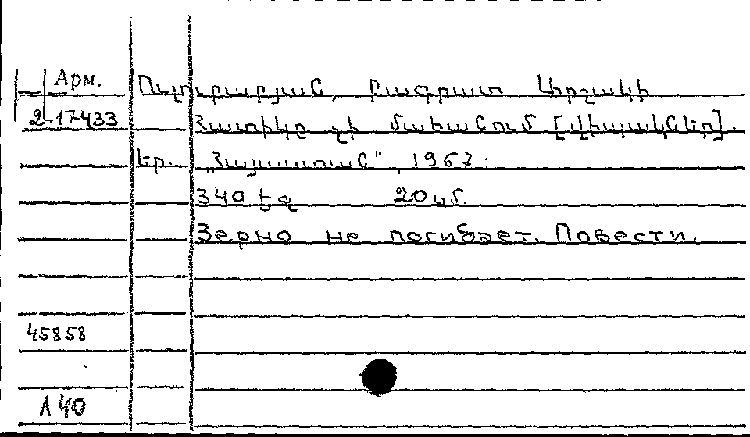 Арм.
Ուլուբաբյան, Բագրատ Արշակի
2-17433
Հատիկը չի մահանում [վիպակներ].
Եր. „Հայաստան", 1967.
340 էջ 20 սմ.
Зерно не погибает. Повести.
45858
А 40